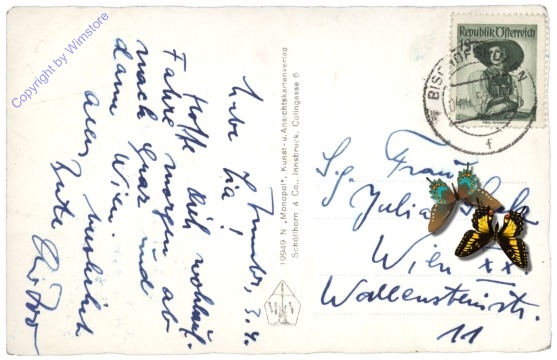 Copyright by Wimstore
Innsbr, 3.4.
Liebe Lia!
Hoffe dich wohlauf.
Fahre morgen ab
nach Graz und
dann Wien.
alles
Gute
19949 N „Monopol", Kunst- u. Ansichtskartenverlag
Schöllhorn & Co., Innsbruck, Colingasse 6
Republik Österreich
BISCHOF
f
Frau
S.g. Julia
Wien XX
Wallensteinstr.
11